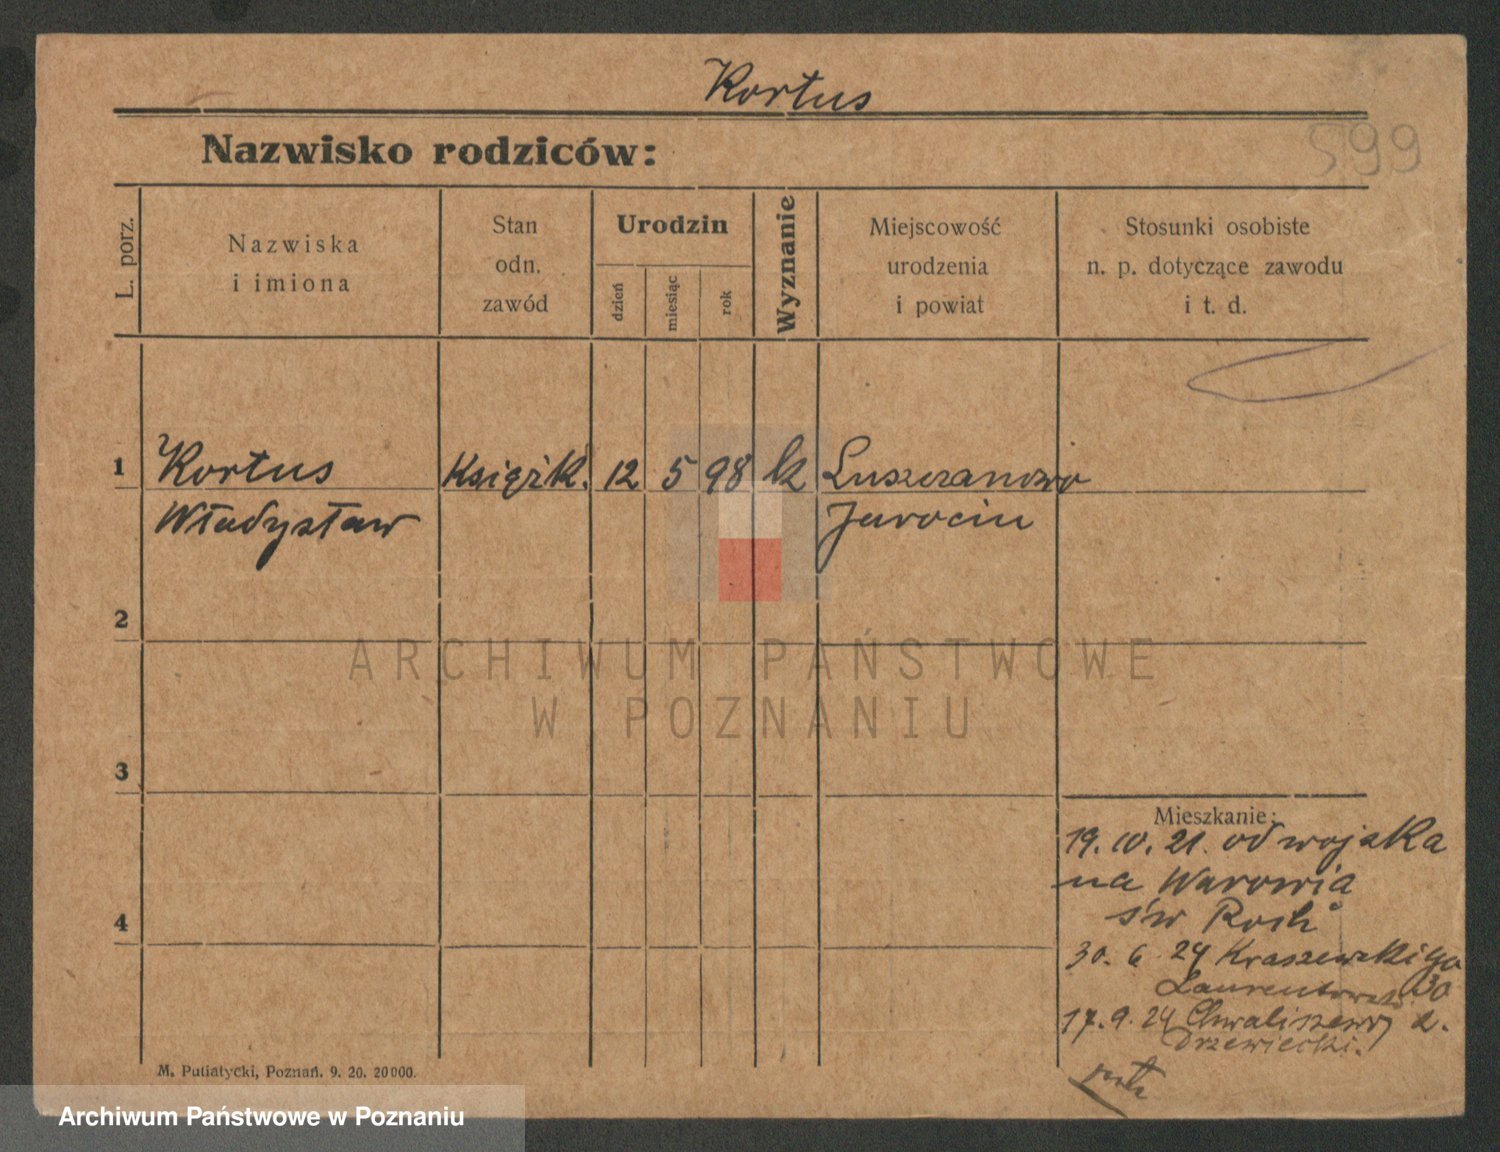 Kortus
599
Nazwisko rodziców:
L. porz.
Nazwiska
i imiona
Stan
odn.
zawód
Urodzin
dzień
miesiąc
rok
Wyznanie
Miejscowość
urodzenia
i powiat
Stosunki osobiste
n. p. dotyczące zawodu
i t. d.
1 Kortus Książk. 12 5 98 k Luszczanowo
Władysław Jarocin
2
ARCHIWUM PAŃSTWOWE
W POZNANIU
3
Mieszkanie:
19. 10. 21. od wojska
na Warownia
św Roch
4
30. 6. 24 Kraszewskiego
30
17. 9. 24 Chwaliszewo 2.
Drzewiecki.
M. Putiatycki, Poznań. 9. 20. 20000.
Archiwum Państwowe w Poznaniu